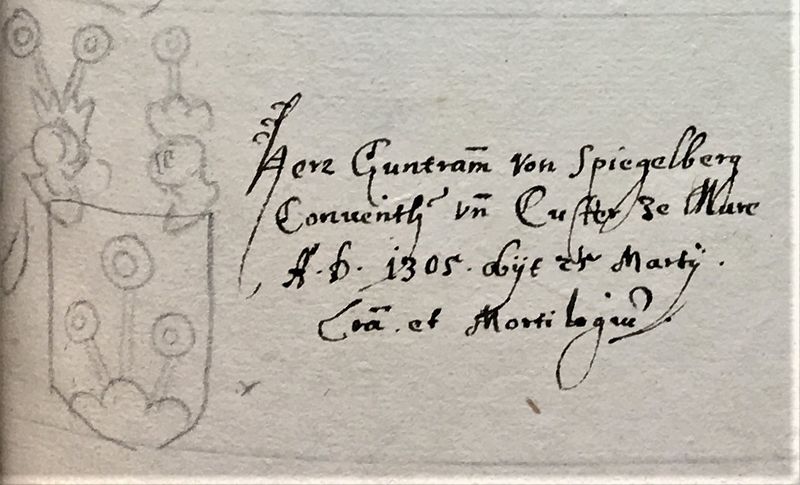 Herr Guntram̄ von Spiegelberg
Conventh⸗ vn̄ Custer ze Mure
A. D. 1305. obijt 25 Martij.
Cra᷉. et Mortilogiu᷉.